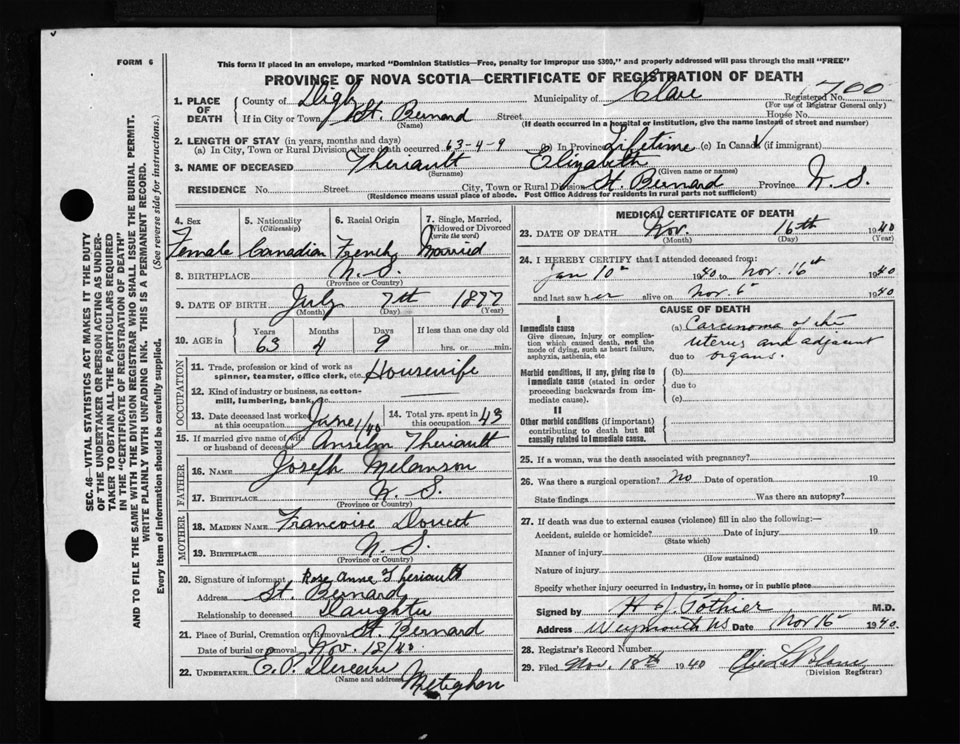 FORM 6
This form if placed in an envelope, marked "Dominion Statistics—Free, penalty for improper use $300," and properly addressed will pass through the mail "FREE"
PROVINCE OF NOVA SCOTIA—CERTIFICATE OF REGISTRATION OF DEATH
1. PLACE OF DEATH County of Digby Municipality of Clare Registered No. 700
(For use of Registrar General only)
If in City or Town St. Bernard Street House No.
(Name) (If death occurred in a hospital or institution, give the name instead of street and number)
2. LENGTH OF STAY (in years, months and days)
(a) In City, Town or Rural Division where death occurred 63-4-9 (b) In Province Lifetime (c) In Canada (if immigrant)
3. NAME OF DECEASED Theriault Elizabeth
(Surname) (Given name or names)
RESIDENCE No. Street City, Town or Rural Division St. Bernard Province N. S.
(Residence means usual place of abode. Post Office Address for residents in rural parts not sufficient)
4. Sex Female
5. Nationality (Citizenship) Canadian
6. Racial Origin French
7. Single, Married, Widowed or Divorced (write the word) Married
8. BIRTHPLACE N. S.
(Province or Country)
9. DATE OF BIRTH July 7th 1877
(Month) (Day) (Year)
10. AGE in Years Months Days If less than one day old
63 4 9 hrs. or min.
OCCUPATION
11. Trade, profession or kind of work as spinner, teamster, office clerk, etc. Housewife
12. Kind of industry or business, as cotton-mill, lumbering, bank, etc.
13. Date deceased last worked at this occupation June 1/40
14. Total yrs. spent in this occupation 43
15. If married give name of wife or husband of deceased Anselm Theriault
FATHER
16. NAME Joseph Melanson
17. BIRTHPLACE N. S.
(Province or Country)
MOTHER
18. MAIDEN NAME Francoise Doucet
19. BIRTHPLACE N. S.
(Province or Country)
20. Signature of informant Rose Anne Theriault
Address St. Bernard
Relationship to deceased Daughter
21. Place of Burial, Cremation or Removal St. Bernard
Date of burial or removal Nov. 18/40
22. UNDERTAKER E. P.
(Name and address) Meteghan
MEDICAL CERTIFICATE OF DEATH
23. DATE OF DEATH Nov. 16th 1940
(Month) (Day) (Year)
24. I HEREBY CERTIFY that I attended deceased from:
Jan 10th 1940 to Nov. 16th 1940
and last saw her alive on Nov. 6th 1940
CAUSE OF DEATH
I
Immediate cause
Give disease, injury or complication which caused death, not the mode of dying, such as heart failure, asphyxia, asthenia, etc
(a) Carcinoma of the
uterus and adjacent
due to organs.
Morbid conditions, if any, giving rise to immediate cause (stated in order proceeding backwards from immediate cause).
(b)
due to
(c)
II
Other morbid conditions (if important) contributing to death but not causally related to immediate cause.
25. If a woman, was the death associated with pregnancy?
26. Was there a surgical operation? no Date of operation 19
State findings Was there an autopsy?
27. If death was due to external causes (violence) fill in also the following:—
Accident, suicide or homicide? Date of injury 19
(State which)
Manner of injury
(How sustained)
Nature of injury
Specify whether injury occurred in industry, in home, or in public place
Signed by H J Pothier M.D.
Address Weymouth NS Date Nov 16 1940
28. Registrar's Record Number
29. Filed Nov. 18th 1940
(Division Registrar)
SEC. 46—VITAL STATISTICS ACT MAKES IT THE DUTY
OF THE UNDERTAKER OR PERSON ACTING AS UNDER-
TAKER TO OBTAIN ALL THE PARTICULARS REQUIRED
IN THE "CERTIFICATE OF REGISTRATION OF DEATH"
AND TO FILE THE SAME WITH THE DIVISION REGISTRAR WHO SHALL ISSUE THE BURIAL PERMIT.
WRITE PLAINLY WITH UNFADING INK. THIS IS A PERMANENT RECORD.
Every item of information should be carefully supplied. (See reverse side for instructions.)